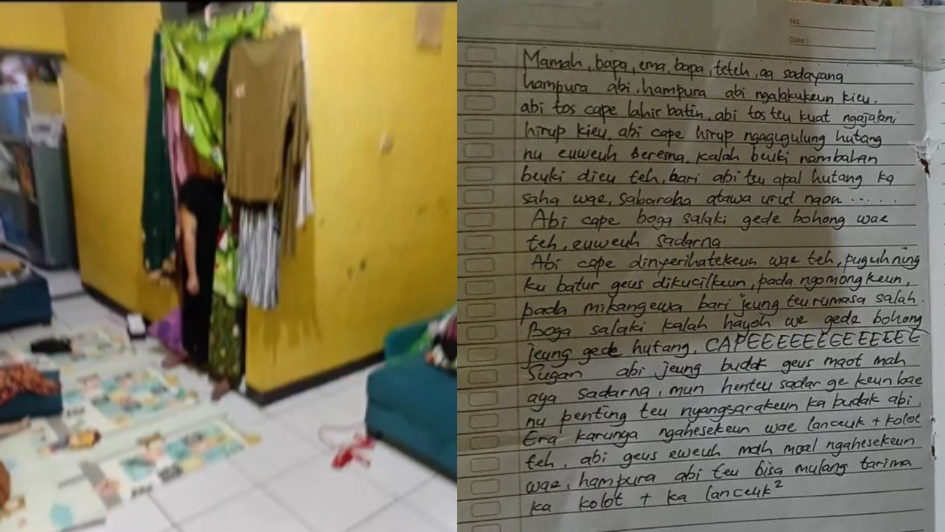 No.
Date :
Mamah, bapa, ema, bapa, teteh, aa sadayang
hampura abi, hampura abi ngalakukeun kieu.
abi tos cape lahir batin, abi tos teu kuat ngajalani
hirup kieu, abi cape hirup ngagugulung hutang
nu euweuh beresna, kalah beuki nambahan
beuki dieu teh, bari abi teu apal hutang ka
saha wae, sabaraha atawa urut naon ......
Abi cape boga salaki gede bohong wae
teh, euweuh sadarna
Abi cape dinyerihatekeun wae teh, puguhning
ku batur geus dikucilkeun, pada ngomongkeun,
pada mikangewa bari jeung teu rumasa salah.
Boga salaki kalah hayoh we gede bohong
jeung gede hutang, CAPEEEEEEEEEEEEEE
Sugan abi jeung budak geus maot mah
aya sadarna, mun henteu sadar ge keun bae
nu penting teu nyangsarakeun ka budak abi.
Era karunya ngahesekeun wae lanceuk + kolot
teh. abi geus eweuh mah moal ngahesekeun
wae, hampura abi teu bisa mulang tarima
ka kolot + ka lanceuk²